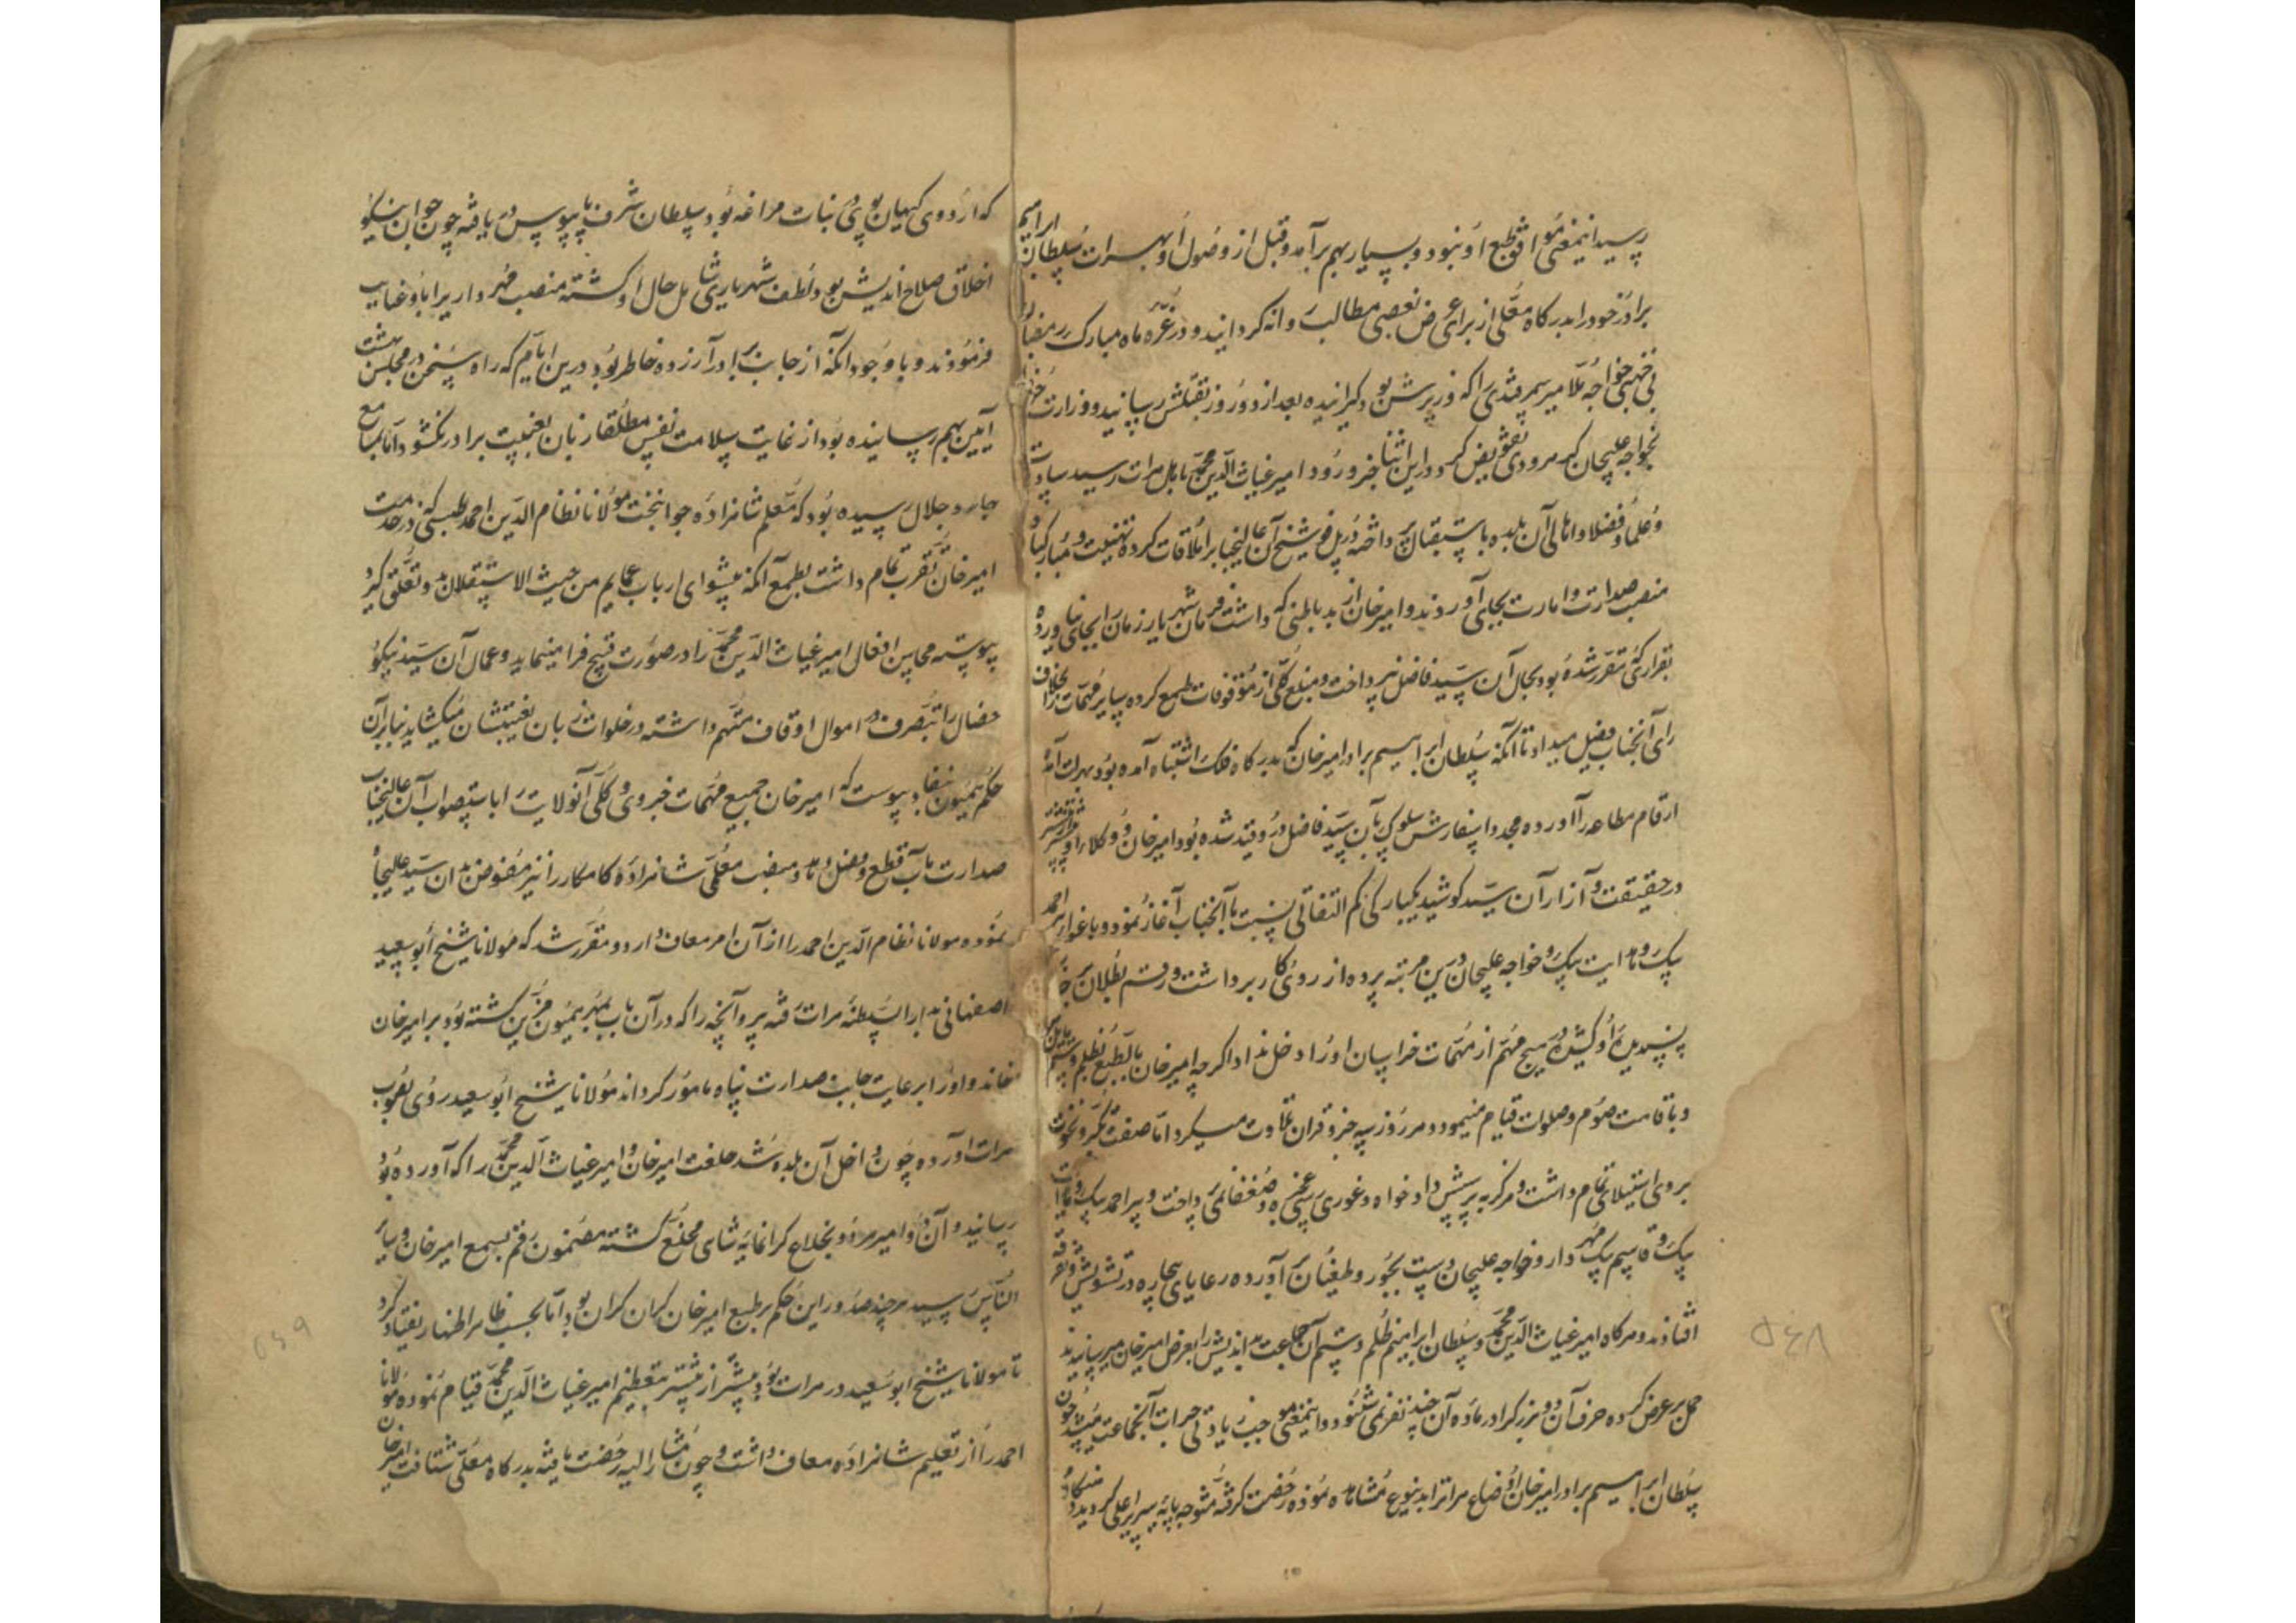 رسید اینمعنی موافق طبع او نبود و بسیار بهم برآمد و قبل از وصول او بهرات سلطان ابراهیم
برادر خود را بدرگاه معلی از برای عرض بعضی مطالب روانه گردانید و در غره ماه مبارک رمضان
بی جهتی خواجه ملا میر سمرقندی را که وزیرش بود گیرانیده بعد از دو روز بقتلش رسانید و وزارت خود
بخواجه علیجان کبر مرودی تفویض کرد و در این اثنا خبر ورود امیر غیاث الدین محمد باهل هرات رسید سادات
و علما و فضلا و اهالی آن بلده باستقبال پرداخته در پل فوشنج آن عالیجناب را ملاقات کرده تهنیت و مبارکباد
منصب صدارت و امارت بجای آوردند و امیرخان از بد باطنی که داشت فرمان شهریار زمان را بجای نیاورده
بقراری که مقرر شده بود بحال آن سید فاضل نپرداخت و مبلغ کلی از موقوفات طمع کرده سایر مهمات را بخلاف
رای آنجناب فیصل میداد تا آنکه سلطان ابراهیم برادر امیرخان که بدرگاه فلک اشتباه آمده بود بهرات آمد
ارقام مطاعه را آورده مجددا سفارش سلوک بآن سید فاضل در و قید شده بود امیرخان و وکلاء او
در حقیقت و آزار آن سید کوشید یکبارگی کم التفاتی نسبت بآنجناب آغاز نمود و باغوای امیر احمد
بیک و هدایت بیک و خواجه علیجان درین مرتبه پرده از روی کار برداشت و رقم بطلان بر
پسندیده او کشیده در هیچ مهم از مهمات خراسان او را دخل نداد اگرچه امیرخان بالطبع بظلم و ستم مایل
و باقامت صوم و صلوات قیام مینمود و هر روز سه جزو قران تلاوت میکرد اما صفت تکبر و نخوت
بر وی استیلای تمام داشت و هرگز به پرسش دادخواه و غوررسی عجزه و ضعفا نمی پرداخت و پیر احمد بیک و هدایت
بیک و قاسم بیک مهردار و خواجه علیجان دست بجور و طغیان برآورده رعایای بیچاره در تشویش و تفرقه
افتادند و هرگاه امیر غیاث الدین محمد و سلطان ابراهیم ظلم و ستم آن جماعت بد اندیش را بعرض امیرخان میرسانیدند
حمل بر غرض کرده حرف آن دو بزرگ را در ماده آن چند نفر نمی شنود و اینمعنی موجب زیادتی جرات آنجماعت میشد چون
سلطان ابراهیم برادر امیرخان اوضاع هرات را بدینوع مشاهده نموده رخصت گرفته متوجه پایه سریر اعلی گردید
۵۴۸
که اردوی کیهان پوی نبات مراغه بود سلطان شرف پایبوس دریافته چون جوان نیکو
اخلاق صلاح اندیش بود لطف شهریاری شامل حال او گشته منصب مهرداریرا باو عنایت
فرمودند و با وجود آنکه از جانب برادر آزرده خاطر بود درین ایام که راه سخن در مجلس بهشت
آیین بهم رسانیده بود از غایت سلامت نفس مطلقا زبان بغیبت برادر نگشود اما بمسامع
جاه و جلال رسیده بود که معلم شاهزاده جوانبخت مولانا نظام الدین احمد طبسی که در خدمت
امیرخان تقرب تمام داشت بطمع آنکه پیشوای ارباب عمایم من حیث الاستقلال بدو تعلق گیرد
پیوسته محاسن افعال امیر غیاث الدین محمد را در صورت قبیح فرا مینماید و عمال آن سید نیکو
خصال را بتصرف در اموال اوقاف متهم داشته در خلوات زبان بغیبتشان میگشاید بنابرآن
حکم همیون نفاذ پیوست که امیرخان جمیع مهمات جزوی و کلی آنولایت را باستصواب آن عالیجناب
صدارت مآب قطع و فصل دهد و منصب معلمی شاهزاده کامکار را نیز مفوض بدان سید عالیجاه
نموده مولانا نظام الدین احمد را از آن امر معاف دارد و مقرر شد که مولانا شیخ ابوسعید
اصفهانی بدار السلطنه هرات رفته پروانچه را که در آن باب بمهر همیون مزین گشته بود بر امیرخان
خاند و او را برعایت جانب صدارت پناه مامور گرداند مولانا شیخ ابوسعید روی بصوب
هرات آورده چون داخل آن بلده شد خلعت امیرخان و امیر غیاث الدین محمد را که آورده بود
رسانید و آن دو امیر هر دو بخلاع گرانمایه شاهی مخلع گشته مضمون رقم بسمع امیرخان و سایر
الناس رسید هر چند صدور این حکم بر طبع امیرخان گران گران بود اما بحسب ظاهر اظهار انقیاد کرد
تا مولانا شیخ ابوسعید در هرات بود بیشتر از پیشتر بتعظیم امیر غیاث الدین محمد قیام نموده مولانا
احمد را از تعلیم شاهزاده معاف داشت و چون مشار الیه رخصت یافته بدرگاه معلی شتافت امیرخان
۵۴۹